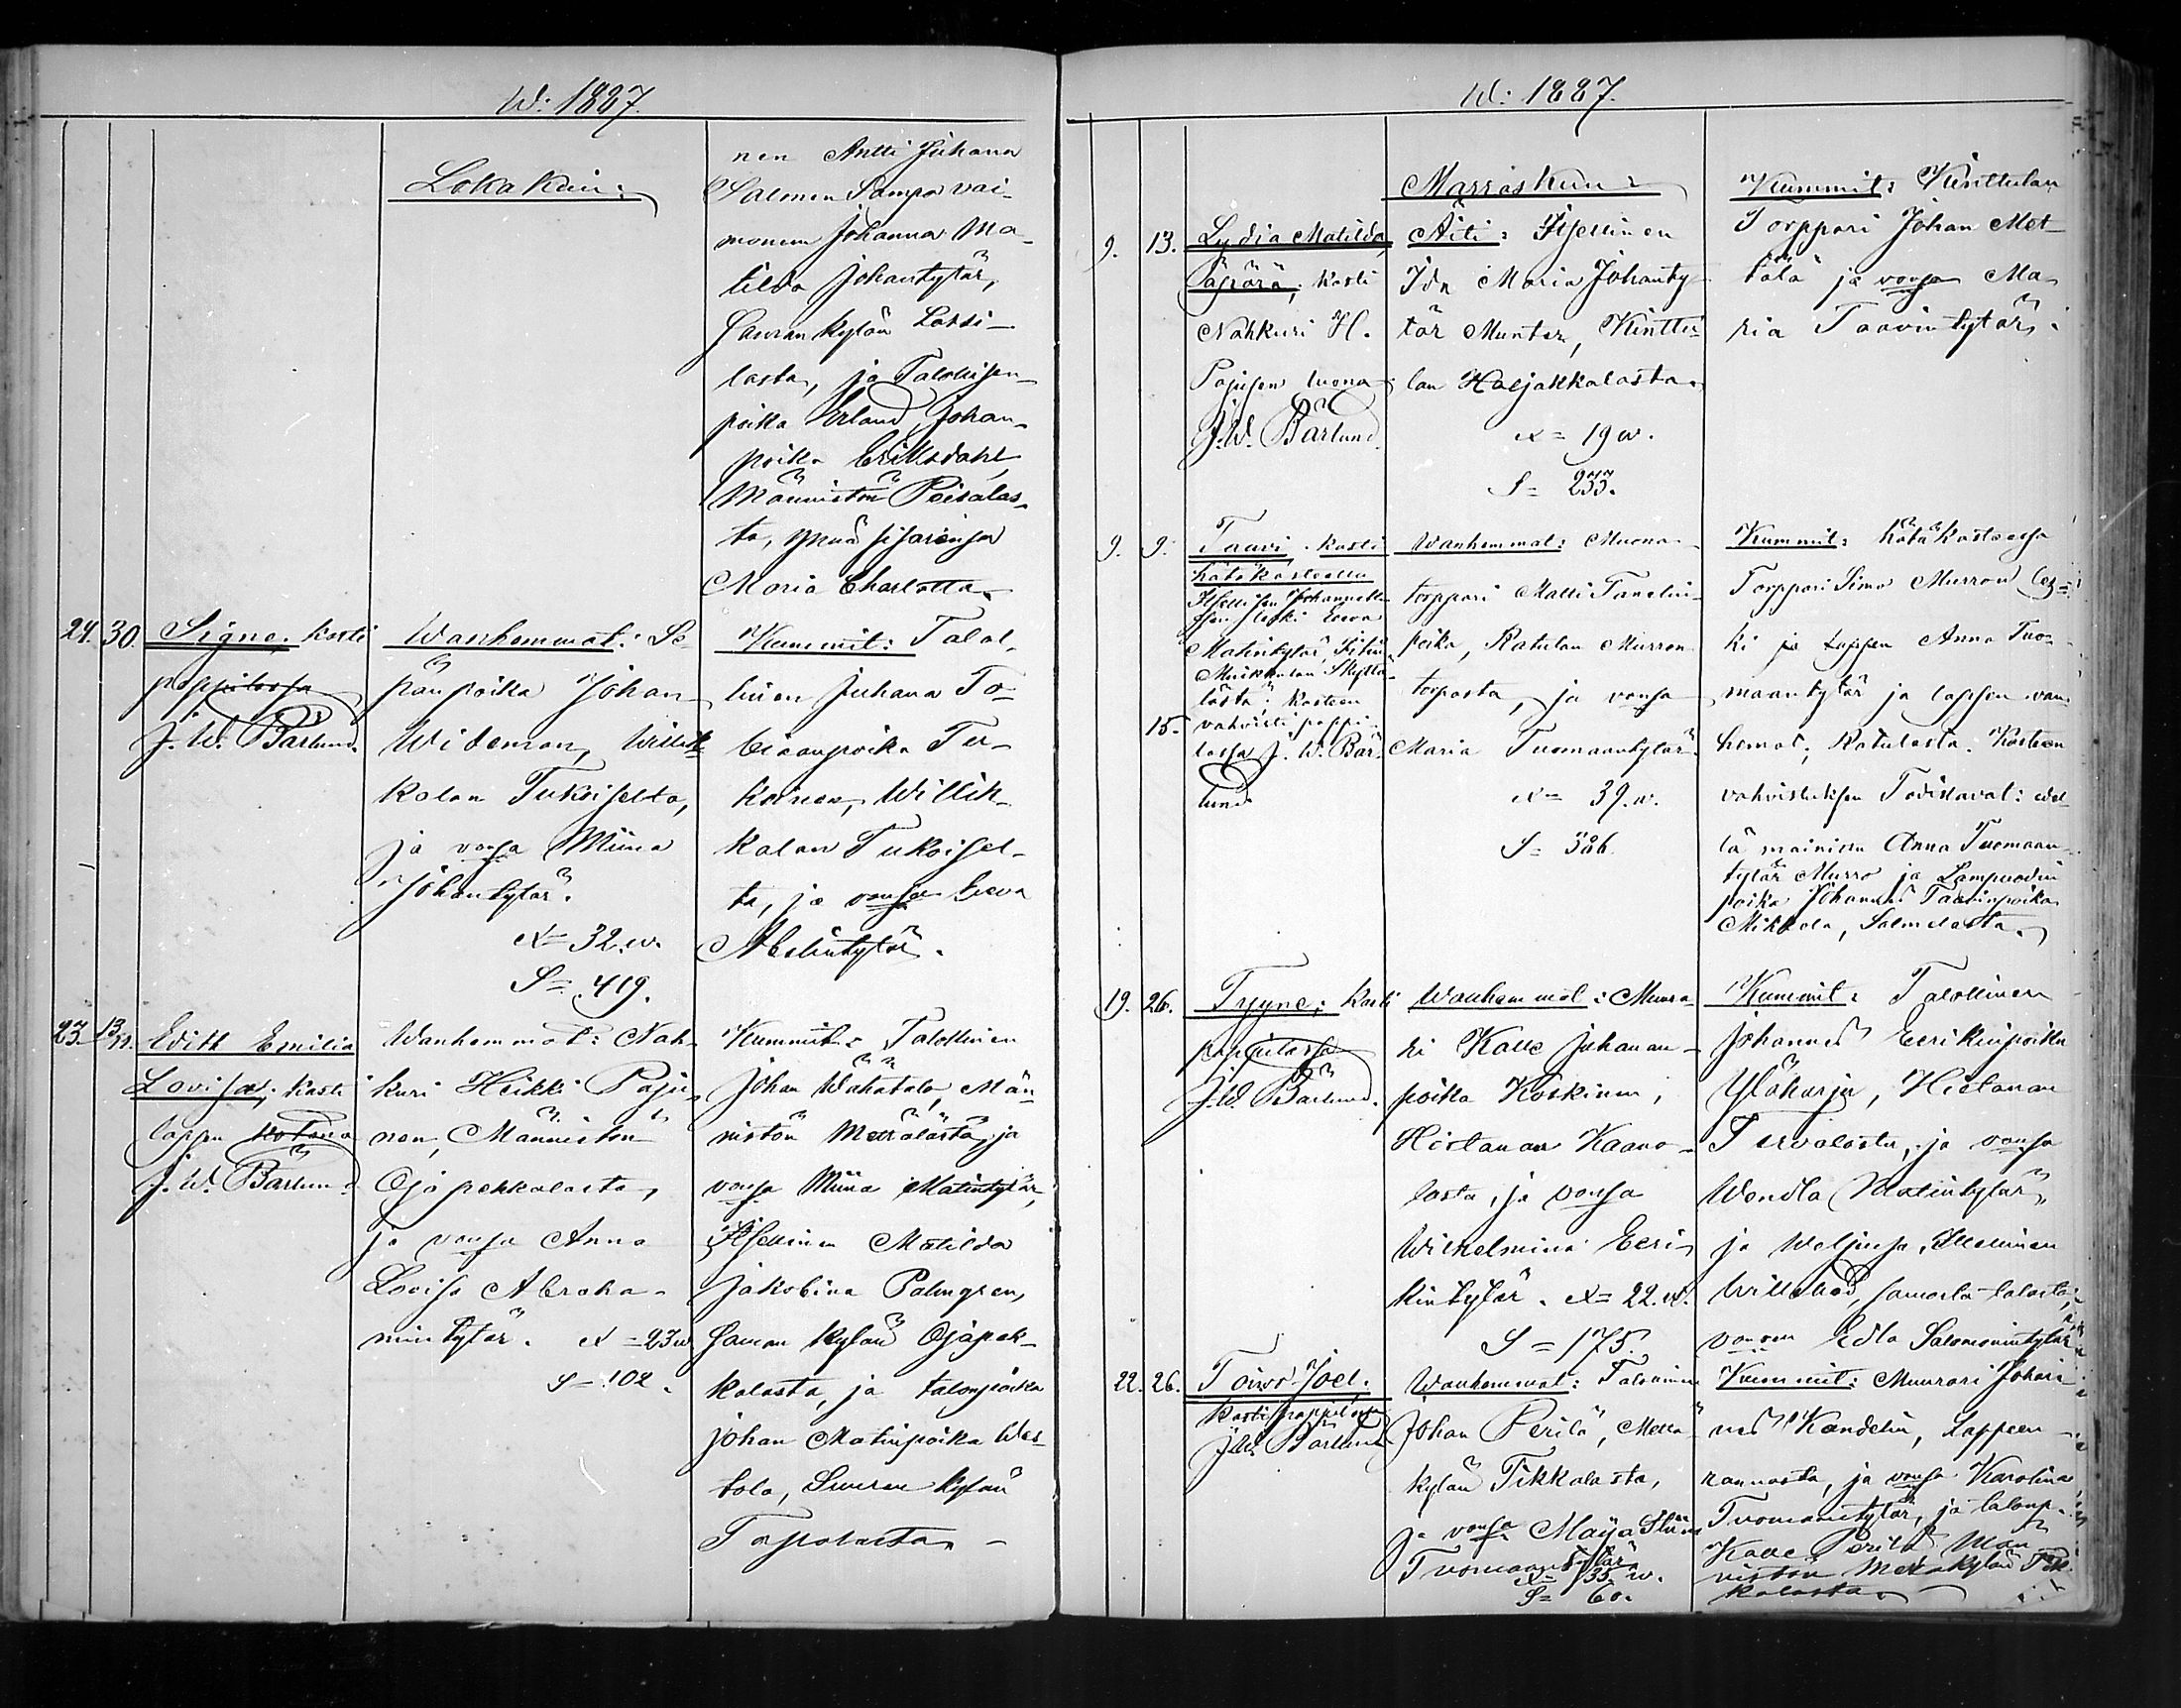 W: 1887.
Lokakuu:
nen Antti Juhana
Salmen Sampa vai-
monsa Johanna Ma-
tilda Johantytär,
Suuren kylän Lassi-
lasta, ja Talollisen-
poika Erland Johan-
poika Eriksdahl
Männistön Peisalas-
ta, ynnä sisarensa
Maria Charlotta.
24. 30. Signe; kasti
pappilassa
J. W. Bärlund.
Wanhemmat: Se-
pänpoika Johan
Wideman, Willik-
kalan Tukoiselta,
ja vmsa Miina
Johantytär.
X = 32. w.
S = 419.
Kummit: Talol-
linen Juhana To-
biaanpoika Tu-
koinen, Willik-
kalan Tukoisel-
ta, ja vmsa Eeva
Abelintytär.
23. 13/11. Edith Emilia
Lovisa; kasti
lapsen kotona
J. W. Bärlund.
Wanhemmat: Nah-
kuri Heikki Paju-
nen, Männistön
Ojapekkalasta,
ja vmsa Anna
Lovisa Abraha-
mintytär. X = 23 w
S = 102.
Kummit: Talollinen
Johan Wähätalo, Män-
nistön Metsälästä, ja
vmsa Miina Matintytär,
Itsellinen Matilda
Jakobina Palmgren,
saman kylän Ojapek-
kalasta, ja talonpoika
Johan Matinpoika Wes-
tola, Suuren kylän
W: 1887.
Marraskuu:
9. 13. Lydia Matilda,
Äpärä; kasti
Nahkuri H.
Pajusen luona
J. W. Bärlund.
Äiti: Itsellinen
Ida Maria Johanty-
tär Munter, Kinttu-
lan Harjakkalasta.
X = 19 w.
S = 233.
Kummit: Kinttulan
Torppari Johan Met-
tälä ja vmsa Ma-
ria Taavintytär.
9. 9. Taavi. kasti
hätäkasteella
Itsellisen Johannek-
sen leski Eeva
Matintytär
15. vahvisti pappi-
lassa J. W. Bär-
lund
Wanhemmat: Muona-
torppari Matti Tanelin-
poika, Ratulan Murron
torpasta, ja vmsa
Maria Tuomaantytär.
X = 39. w.
S = 386.
Kummit: hätäkasteessa
Torppari Simo Murron
ki ja lapsen Anna Tuo-
maantytär ja lapsen van-
hemat; Ratulasta. Kasteen
vahvistuksen Todistavat: edel-
lä mainittu Anna Tuomaan-
tytär Murro ja Lampuodin
poika Johannes Taavinpoika
Mikkola, Salmelasta.
19. 26. Tyyne; kasti
pappilassa
J. W. Bärlund.
Wanhemmat: Muura-
ri Kalle Juhanan-
poika Koskinen,
Hietanan Kaano-
lasta, ja vmsa
Wilhelmina Eeri-
kintytär. X = 22. w.
S = 175.
Kummit: Talollinen
Johannes Eerikinpoika
Yläharju, Hietanan
Tervolasta, ja vmsa
Wendla Matintytär,
ja Weljensä, Itsellinen
Willehad, samasta talosta,
vmonsa Edla Salomonintytär
22. 26. Toiwo Joel;
kasti pappilassa
J. W. Bärlund
Wanhemmat: Talollinen
Johan Perilä, Metsä-
kylän Tikkalasta,
ja vmsa Maija Stiina
Tuomaantytär
X = 35. w.
S = 60.
Kummit: Muurari Johan-
nes Kandelin, Lappeen-
rannasta, ja vmsa Karolina
Tuomaantytär, ja talonp.
Kalle Perilä Män-
nistön Metsäkylän Tik-
kalasta.